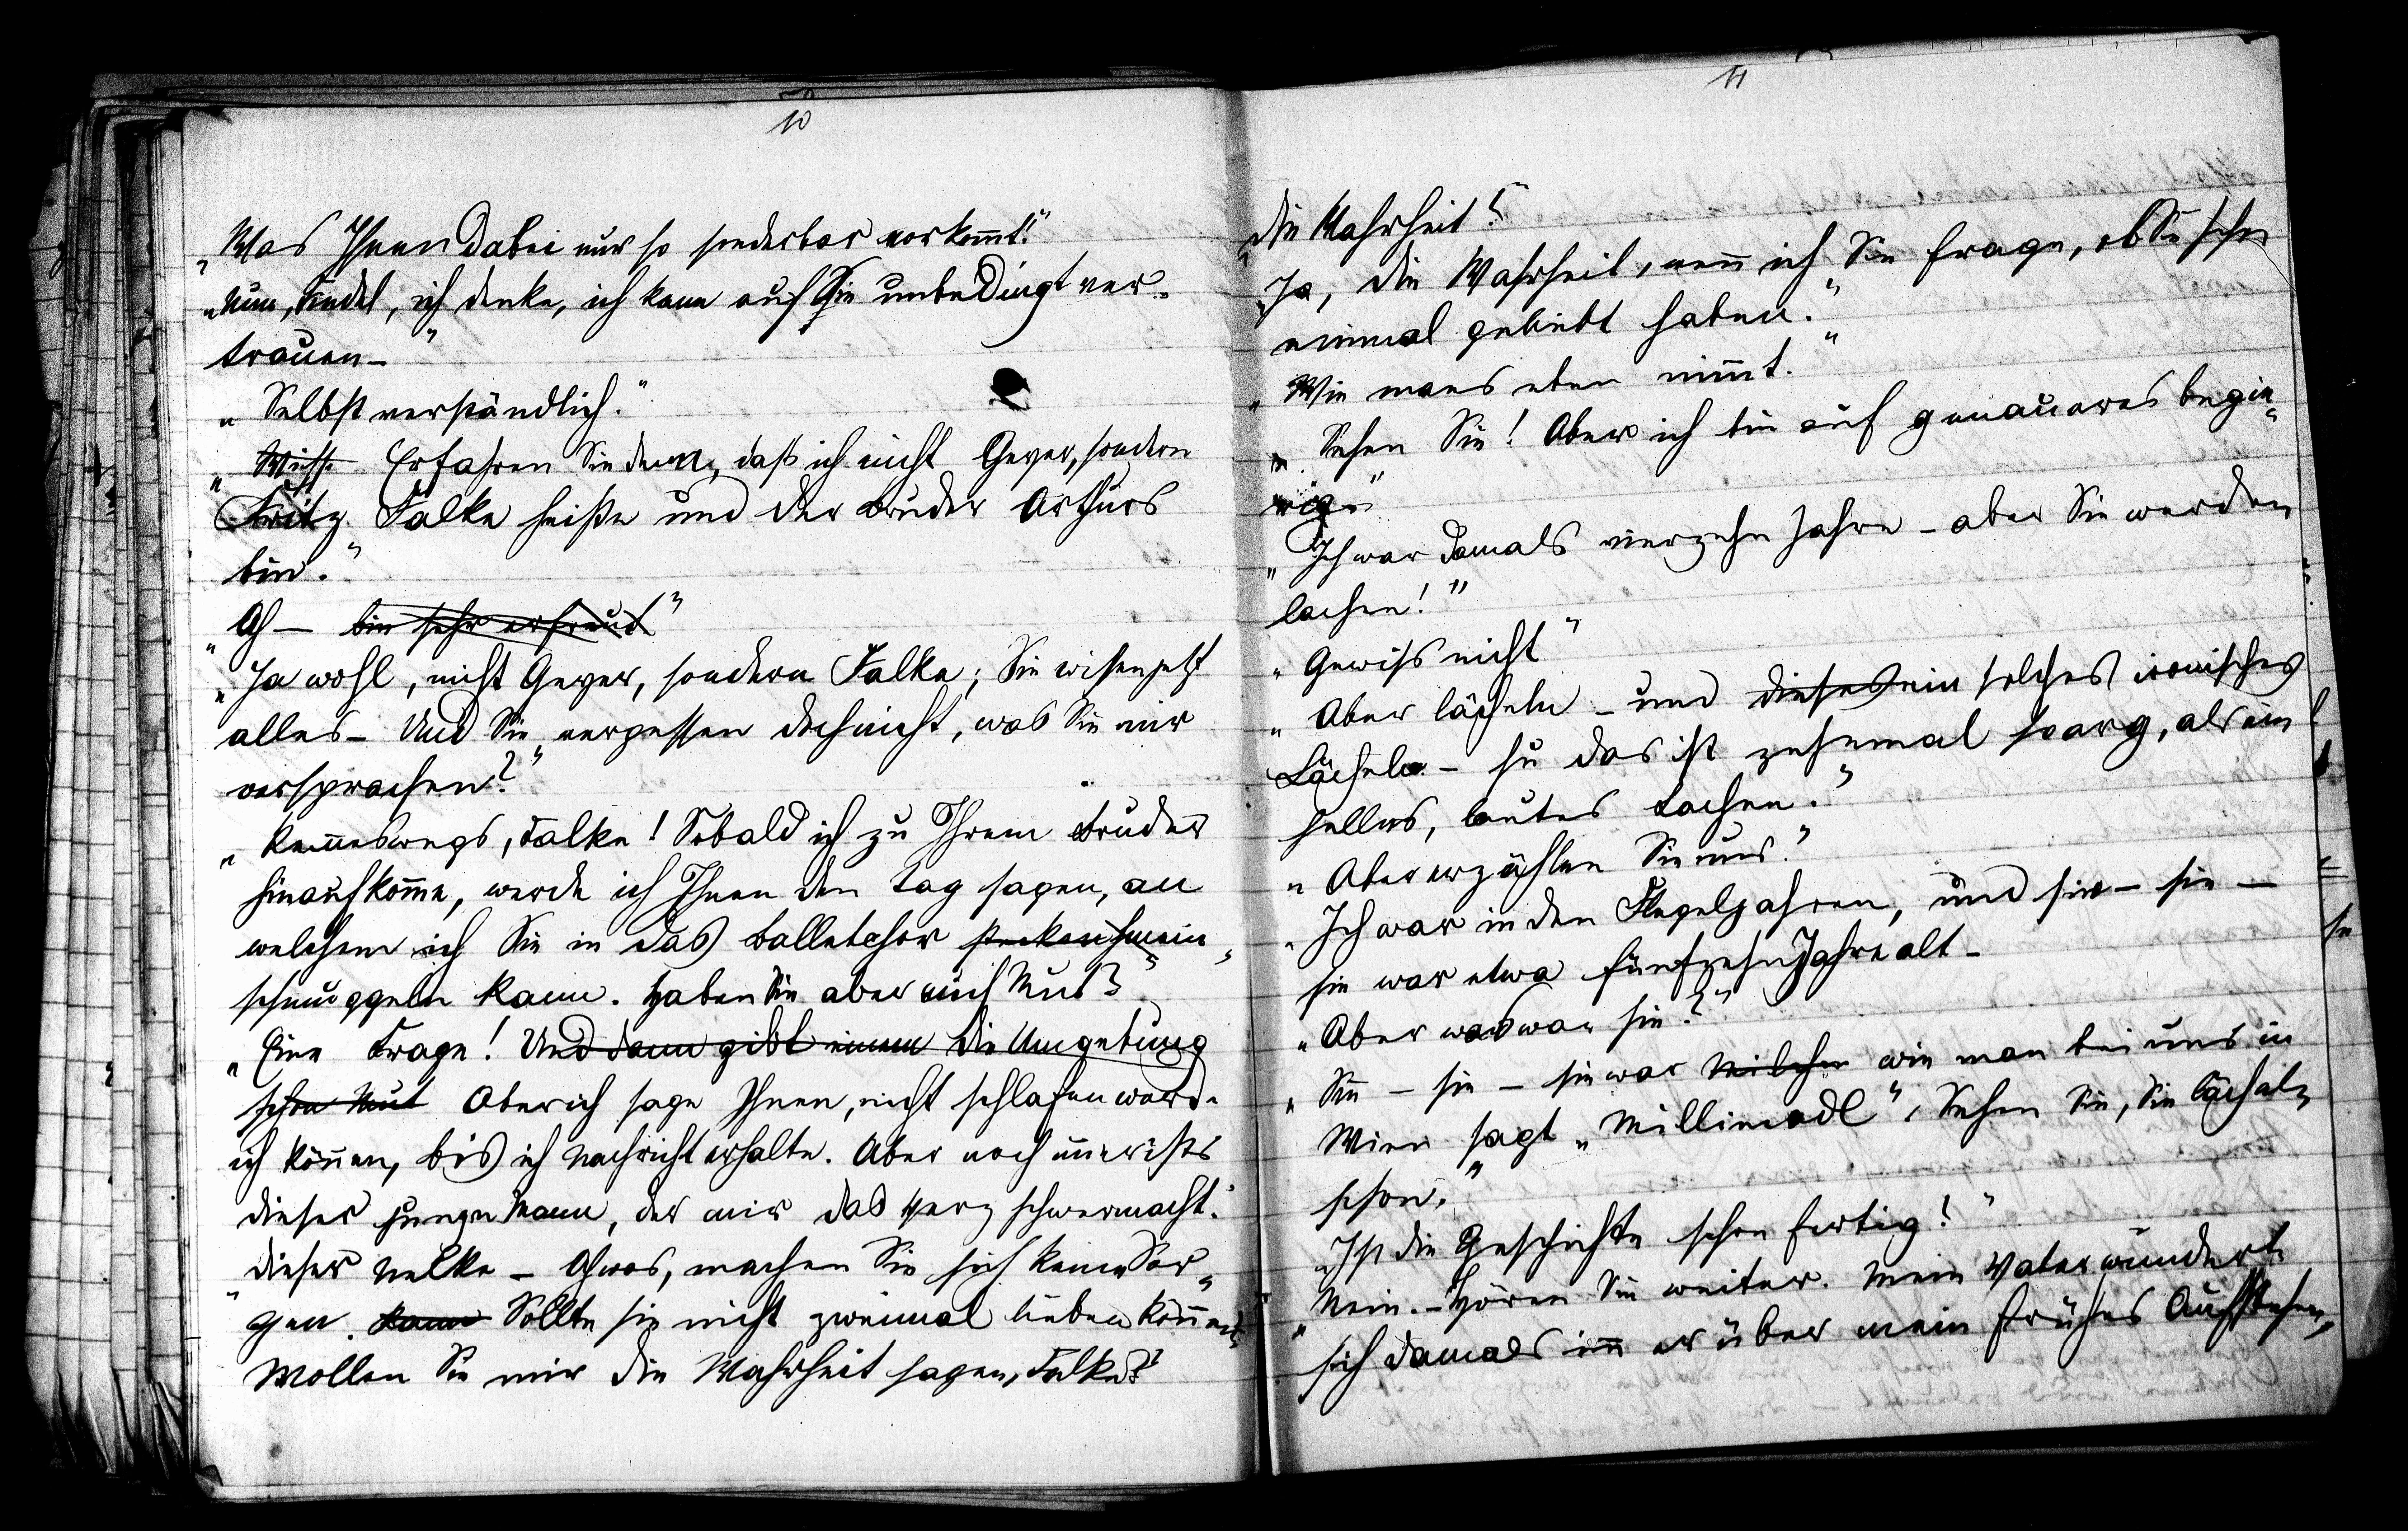 10
„Was Ihnen dabei nur so sonderbar vorkommt!"
„Nun, Findel, ich denke, ich kann auf Sie unbedingt ver-
trauen –"
„Selbstverständlich."
„Wisse Erfahren Sie denn, daß ich nicht Geyer, sondern
Fritz Falke heiße und der Bruder Arthurs
bin."
„Ah – bin sehr erfreut"
„Ja wohl, nicht Geyer, sondern Falke; Sie wissen jetzt
alles – Und Sie vergessen doch nicht, was Sie mir
versprachen?"
„Keineswegs, Falke! Sobald ich zu Ihrem Bruder
hinaufkomme, werde ich Ihnen den Tag sagen, an
welchem ich Sie in das Balletchor hinein-
schmuggeln kann. Haben Sie aber auch Mut?"
„Eine Frage! Und dann gibt einem die Umgebung
schon Mut Aber ich sage Ihnen, nicht schlafen werde
ich können, bis ich Nachricht erhalte. Aber noch immer ists
dieser junge Mann, der mir das Herz schwer macht."
dieser Nelke – Ah was, machen Sie sich keine Sor-
gen. Kann Sollte sie nicht zweimal lieben können"
Wollen Sie mir die Wahrheit sagen, Falke?"
11
„die Wahrheit?"
„Ja, die Wahrheit, wenn ich Sie frage, ob Sie schon
einmal geliebt haben."
„Wie mans eben nimmt."
„Sehen Sie! Aber ich bin auf genaueres begie-
rig."
„Ich war damals vierzehn Jahre – aber Sie werden
lachen!"
„Gewiss nicht"
„Aber lächeln – und dieses ein solches ironisches
Lächeln – hu das ist zehnmal so arg, als ein
helles, lautes Lachen."
„Aber erzählen Sie nur."
„Ich war in den Flegeljahren, und sie – sie –
sie war etwa fünfzehn Jahre alt –
„Aber was war sie?"
„Sie – sie – sie war Milcher wie man bei uns in
Wien sagt „Millimadl", Sehen Sie, Sie lächeln
schon."
„Ist die Geschichte schon fertig!"
„Nein. – Hören Sie weiter. Mein Vater wunderte
sich damals immer über mein frühes Aufstehen,